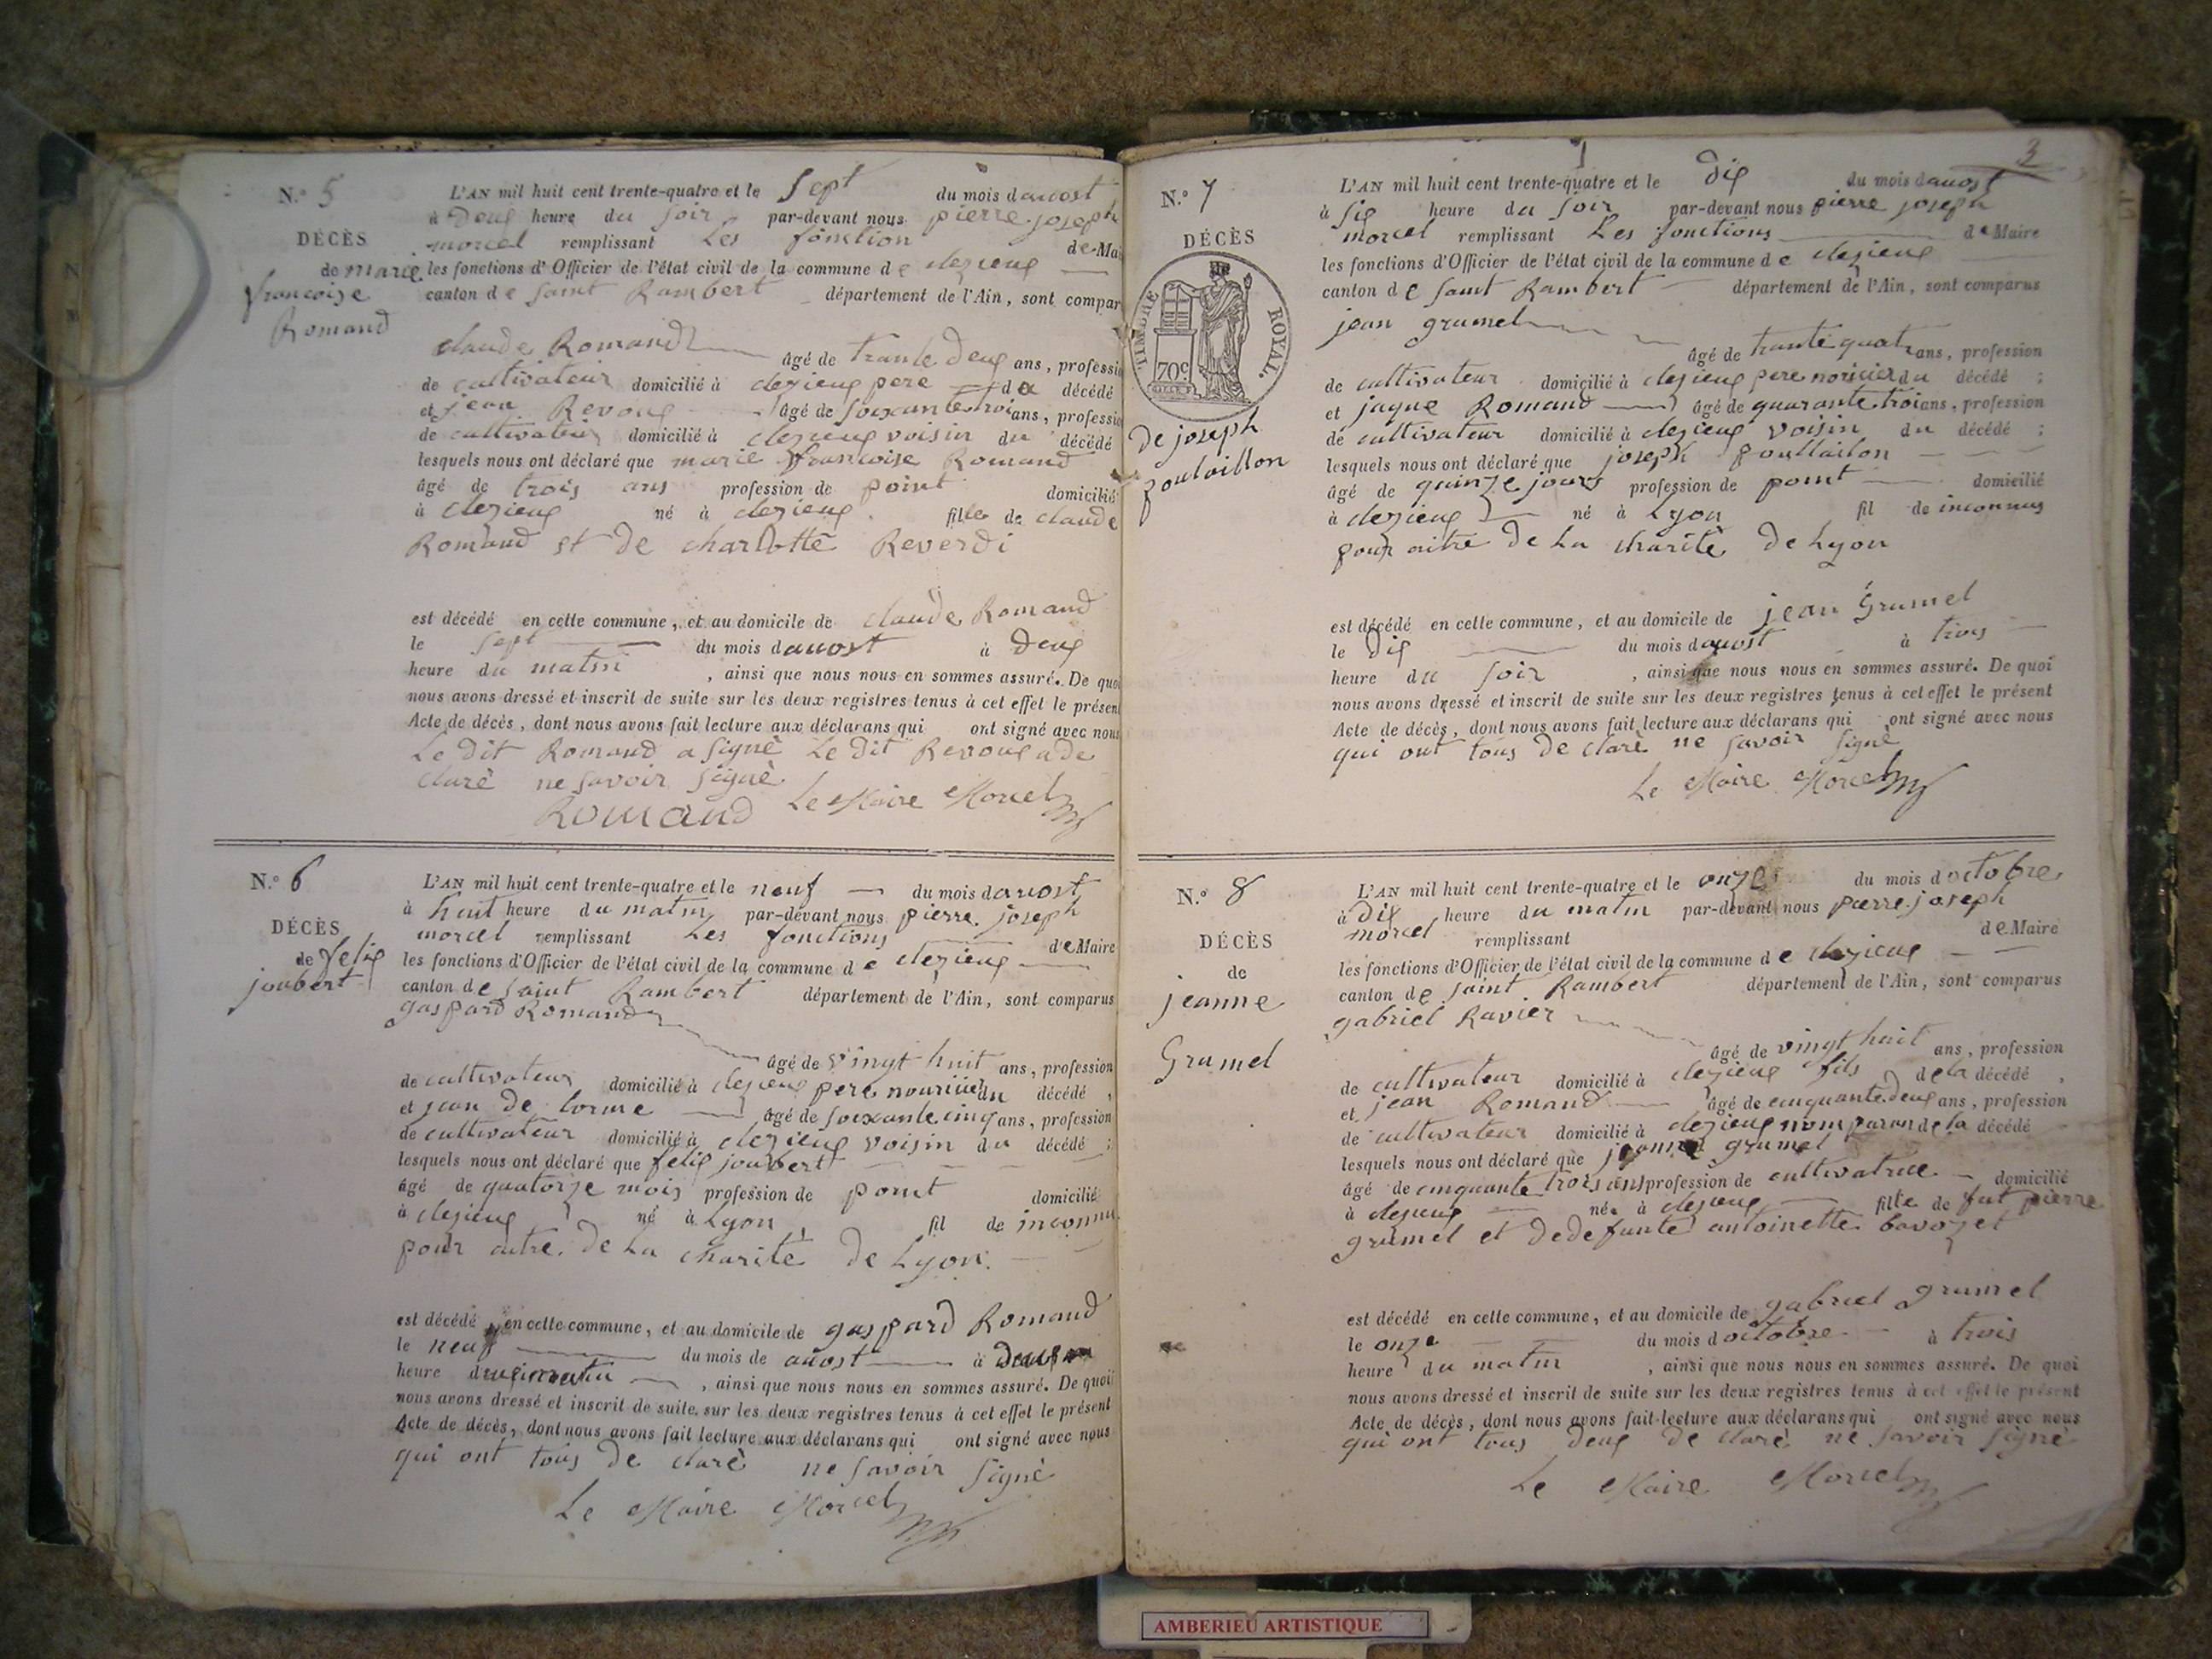 N.° 5
DÉCÈS
de marie
francoise
Romand
L'AN mil huit cent trente-quatre et le sept du mois d auost
à deux heure du soir par-devant nous pierre joseph
morcel remplissant Les fonction de Mai
les fonctions d'Officier de l'état civil de la commune de clezieux
canton de saint Rambert département de l'Ain, sont compar
claude Romand
âgé de trante deux ans, professi
de cultivateur domicilié à clezieux pere du décédé
et jean Revoux âgé de soixante troi ans, professi
de cultivateur domicilié à clezieux voisin du décédé
lesquels nous ont déclaré que marie francoise Romand
âgé de trois ans profession de point domicilié
à clezieux né à clezieux fille de claude
Romand et de charlotte Reverdi
est décédé en cette commune, et au domicile de claude Romand
le sept du mois d auost à deux
heure du matin , ainsi que nous nous en sommes assuré. De quoi
nous avons dressé et inscrit de suite sur les deux registres tenus à cet effet le présen
Acte de décès, dont nous avons fait lecture aux déclarans qui ont signé avec nous
Le dit Romand a signè Le dit Revoux a de
clarè ne savoir signè
Romand Le Maire Morcel
N.° 6
DÉCÈS
de felix
joubert
L'AN mil huit cent trente-quatre et le neuf du mois d auost
à huit heure du matin par-devant nous pierre joseph
morcel remplissant Les fonctions de Maire
les fonctions d'Officier de l'état civil de la commune de clezieux
canton de saint Rambert département de l'Ain, sont comparus
gaspard Romand
âgé de vingt huit ans, profession
de cultivateur domicilié à clezieux pere du décédé ,
et jean de lorme âgé de soixante cinq ans, profession
de cultivateur domicilié à clezieux voisin du décédé ;
lesquels nous ont déclaré que felix joubert
âgé de quatorze mois profession de point domicilié
à clezieux né à Lyon fil de inconnu
pour autre de La charitè de Lyon.
est décédé en cette commune, et au domicile de gaspard Romand
le neuf du mois de auost à
heure du matin , ainsi que nous nous en sommes assuré. De quoi
nous avons dressé et inscrit de suite sur les deux registres tenus à cet effet le présent
Acte de décès, dont nous avons fait lecture aux déclarans qui ont signé avec nous
qui ont tous de clarè ne savoir signè
Le Maire Morcel
3
N.° 7
DÉCÈS
TIMBRE ROYAL.
70c
De joseph
poulaillon
L'AN mil huit cent trente-quatre et le dix du mois d auost
à six heure du soir par-devant nous pierre joseph
morcel remplissant Les fonctions de Maire
les fonctions d'Officier de l'état civil de la commune de clezieux
canton de saint Rambert département de l'Ain, sont comparus
jean grumel
âgé de trante quatr ans, profession
de cultivateur domicilié à clezieux pere du décédé ;
et jaque Romand âgé de quarante troi ans, profession
de cultivateur domicilié à clezieux voisin du décédé ;
lesquels nous ont déclaré que joseph poullaillon
âgé de quinze jours profession de point domicilié
à clezieux né à Lyon fil de inconnus
pour aitre de La charitè de Lyon
est décédé en cette commune, et au domicile de jean Grumel
le dix du mois d auost à trois
heure du soir , ainsi que nous nous en sommes assuré. De quoi
nous avons dressé et inscrit de suite sur les deux registres tenus à cet effet le présent
Acte de décès, dont nous avons fait lecture aux déclarans qui ont signé avec nous
qui ont tous de clarè ne savoir signè
Le Maire Morcel
N.° 8
DÉCÈS
de
jeanne
Grumel
L'AN mil huit cent trente-quatre et le onze du mois d octobre
à dix heure du matin par-devant nous pierre joseph
morcel remplissant de Maire
les fonctions d'Officier de l'état civil de la commune de clezieux
canton de saint Rambert département de l'Ain, sont comparus
gabriel Ravier
âgé de vingt huit ans, profession
de cultivateur domicilié à clezieux fils de la décédé ,
et jean Romand âgé de cinquante deux ans, profession
de cultivateur domicilié à clezieux nom paran de la décédé
lesquels nous ont déclaré que jeanne grumel
âgé de cinquante trois ans profession de cultivatrice domicilié
à clezieux née à clezieux fille de fut pierre
grumel et de defunte antoinette bavozet
est décédé en cette commune, et au domicile de gabriel grumel
le onze du mois d octobre à trois
heure du matin , ainsi que nous nous en sommes assuré. De quoi
nous avons dressé et inscrit de suite sur les deux registres tenus à cet effet le présent
Acte de décès, dont nous avons fait lecture aux déclarans qui ont signé avec nous
qui ont tous deux de clarè ne savoir signè
Le Maire Morcel
AMBERIEU ARTISTIQUE